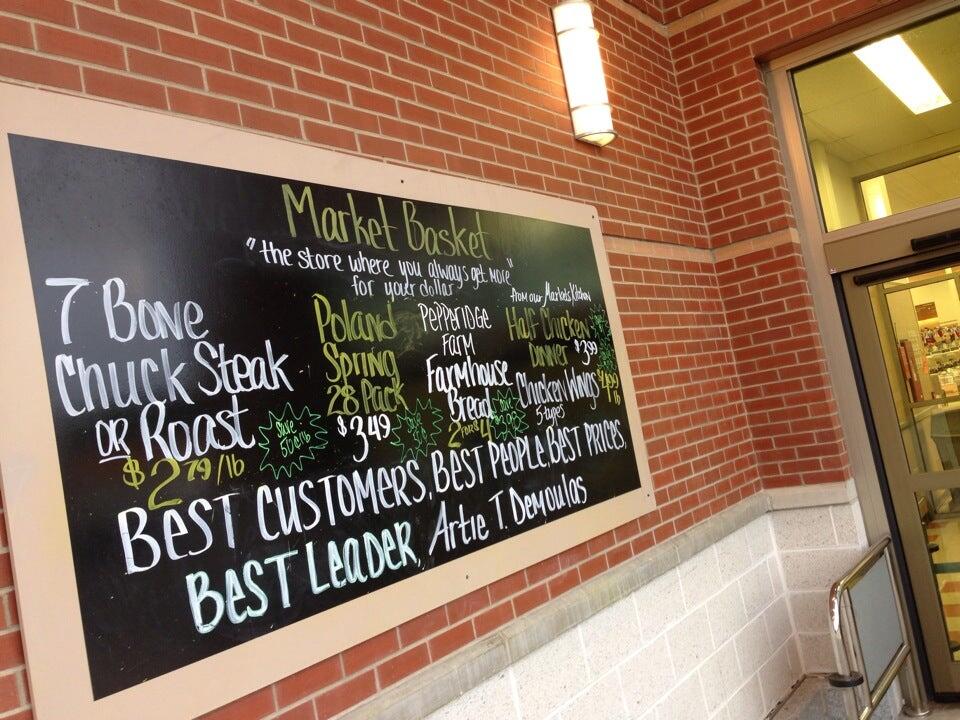 Market Basket
"the store where you always get more"
for your dollar
7 Bone
Chuck Steak
OR Roast
$2.79/lb
Save
Poland
Spring
28 Pack
$3.49
Pepperidge
Farm
Farmhouse
Bread
2 FOR $4
from our Markets Kitchen
Half Chicken
Dinner $3.99
Chicken Wings
5 types
BEST CUSTOMERS, BEST PEOPLE, BEST PRICES,
BEST LEADER, Artie T. Demoulas